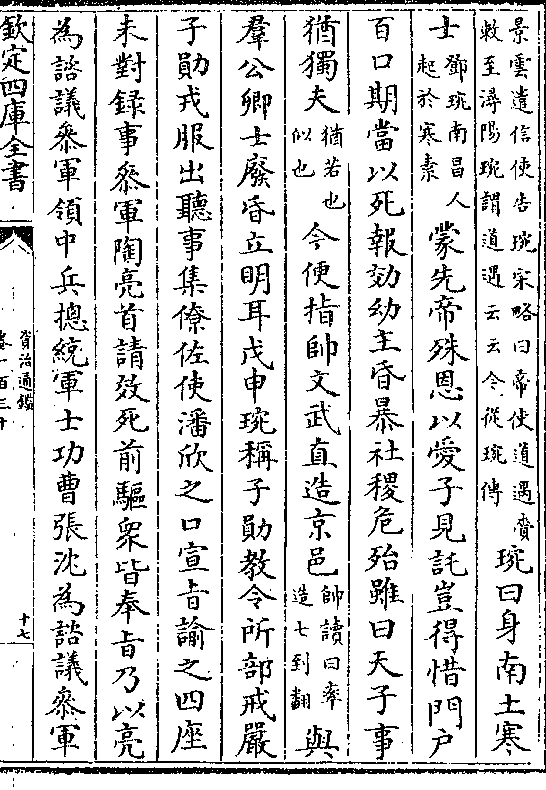 景雲遣信使告琬宋略曰帝使道遇賫
敕至潯陽琬謂道遇云云今從琬傳
琬曰身南土寒
士
鄧琬南昌人
起於寒素
蒙先帝殊恩以愛子見託豈得惜門户
百口期當以死報効幼主昏暴社稷危殆雖曰天子事
猶獨夫
猶若也
似也
今便指帥文武直造京邑
帥讀曰率
造七到翻
與
羣公卿士廢昏立明耳戊申琬稱子勛教令所部戒嚴
子勛戎服出聽事集僚佐使潘欣之口宣旨諭之四座
未對録事叅軍陶亮首請效死前驅衆皆奉旨乃以亮
為諮議叅軍領中兵摠統軍士功曹張沈為諮議叅軍
欽定四庫全書
資治通鑑
卷一百三十
十七